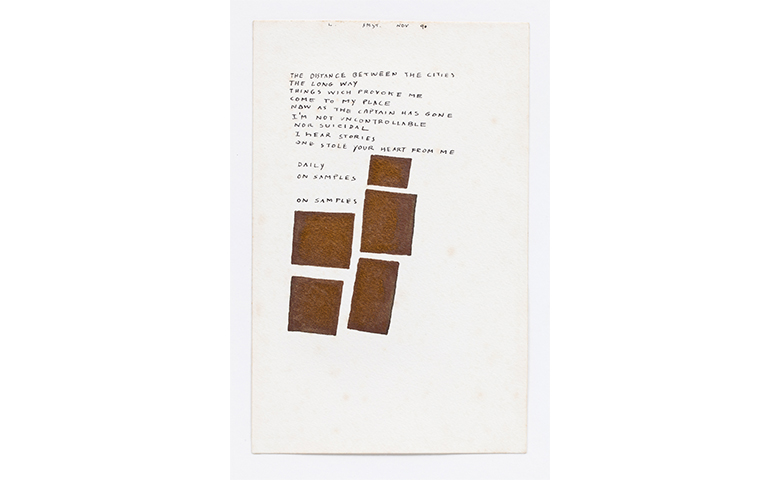 L. NOV 90
THE DISTANCE BETWEEN THE CITIES
THE LONG WAY
THINGS WICH PROVOKE ME
COME TO MY PLACE
NOW AS THE CAPTAIN HAS GONE
I'M NOT UNCONTROLLABLE
NOR SUICIDAL
I HEAR STORIES
ONE STOLE YOUR HEART FROM ME
DAILY
ON SAMPLES
ON SAMPLES